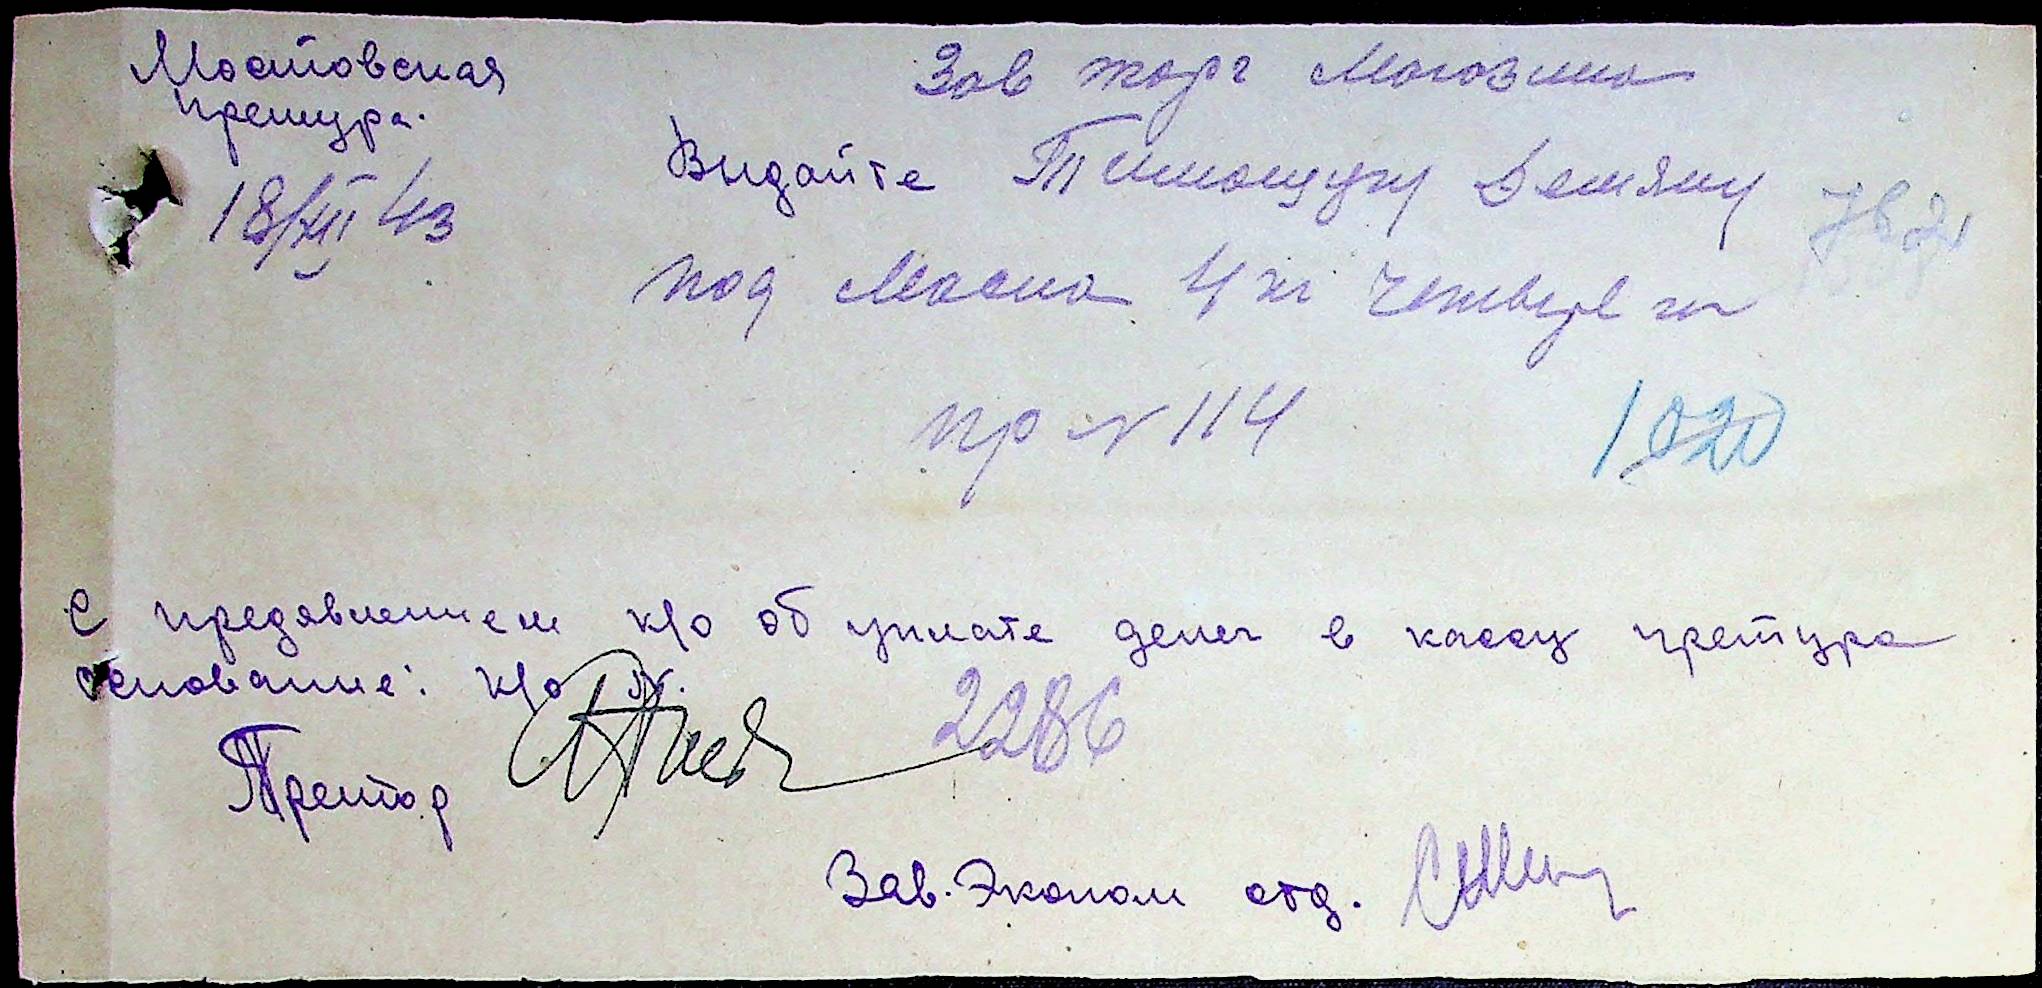 Мостовская
претура.
18/XII 43
Зав торг Магозина
Выдайте Тимощуку Демяну
под Масла 4 кг Четыре кг
пр N 114
1020
С предявлением к/о об уплате денег в кассу претура
основание: к/о N. 2286
Претор
Зав. Эконом отд.